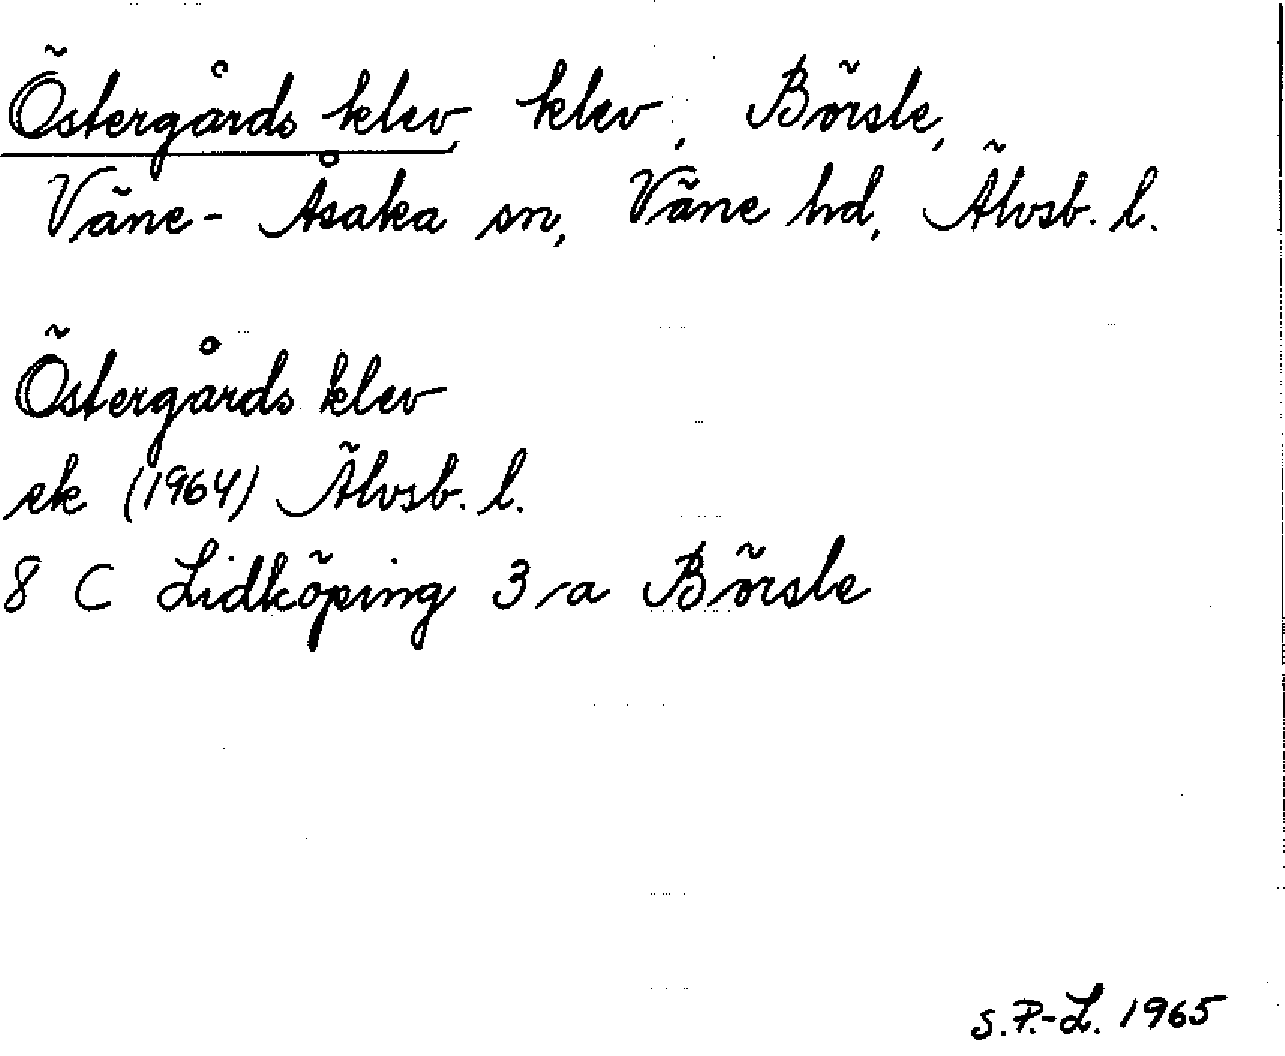 Östergårds klev, klev, Börsle,
Väne-Åsaka sn, Väne hd, Älvsb. l.
Östergårds klev
ek (1964) Älvsb. l.
8 C Lidköping 3 a Börsle
S.P.-L. 1965